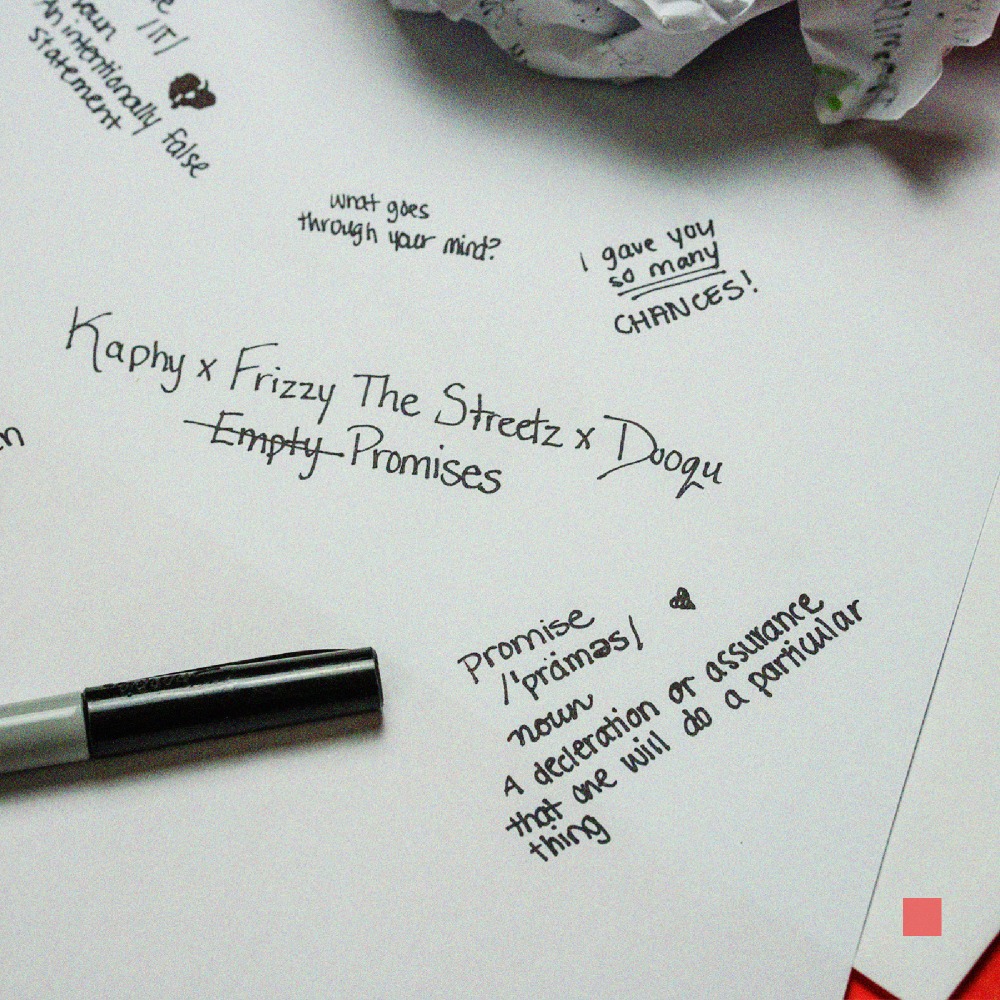 /lī/
noun
An intentionally false
statement
what goes
through your mind?
I gave you
so many
CHANCES!
Kaphy x Frizzy The Streetz x Dooqu
Empty Promises
Promise
/'präməs/
noun
A decleration or assurance
that one will do a particular
thing